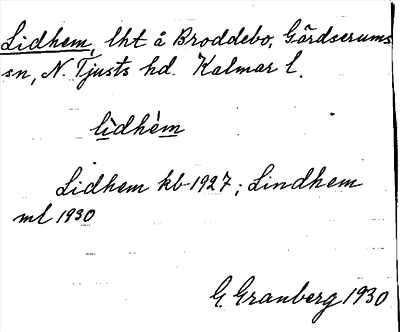 Lidhem, lht å Broddebo, Gärdserums
sn, N. Tjusts hd. Kalmar l.
lìdhèm
Lidhem kb 1927; Lindhem
ml 1930
G. Granberg 1930